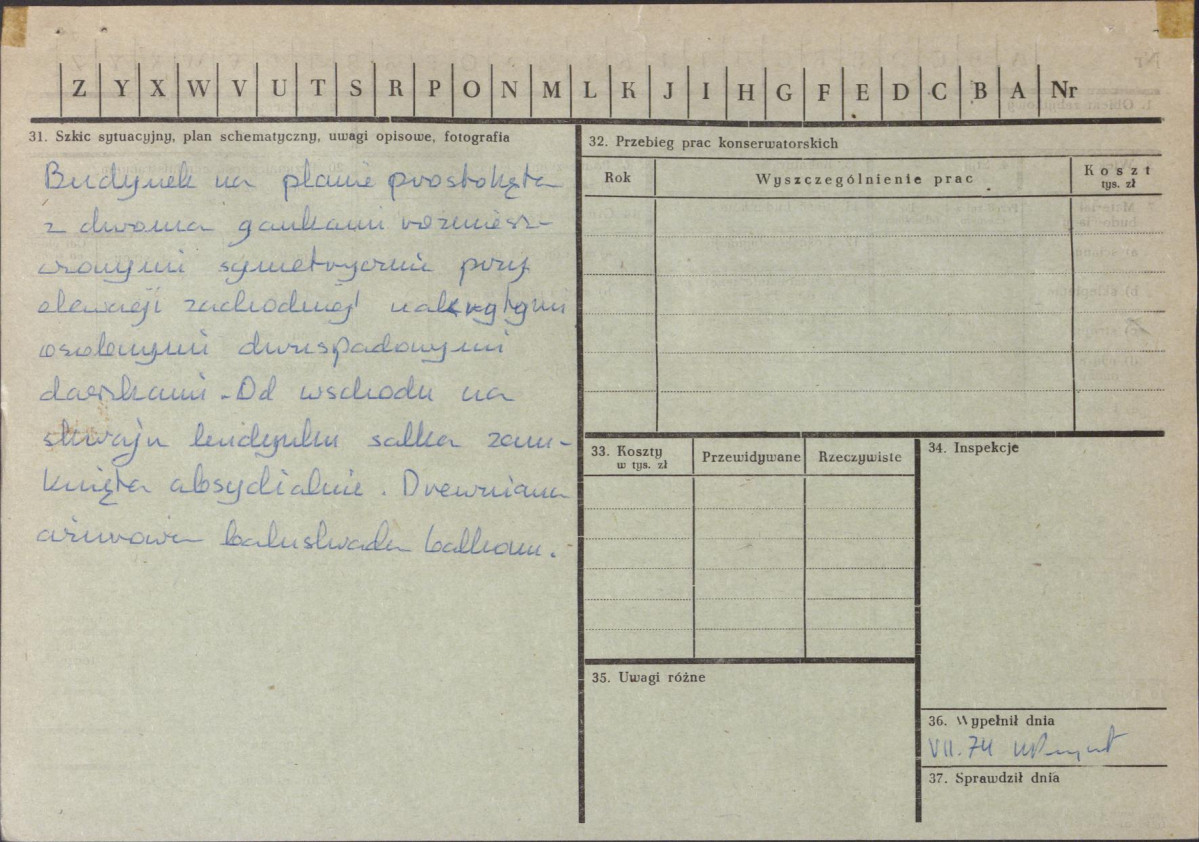 Z Y X W V U T S R P O N M L K J I H G F E D C B A Nr
31. Szkic sytuacyjny, plan schematyczny, uwagi opisowe, fotografia
Budynek na planie prostokąta
z dwoma gankami rozmiesz-
czonymi symetrycznie przy
elewacji zachodniej nakrytymi
osobnymi dwuspadowymi
daszkami. Od wschodu na
skraju budynku salka zam-
knięta absydialnie. Drewniana
ażurowa balustrada balkonu.
32. Przebieg prac konserwatorskich
Rok Wyszczególnienie prac Koszt
tys. zł
33. Koszty
w tys. zł
Przewidywane Rzeczywiste
34. Inspekcje
35. Uwagi różne
36. Wypełnił dnia
VII.74
37. Sprawdził dnia